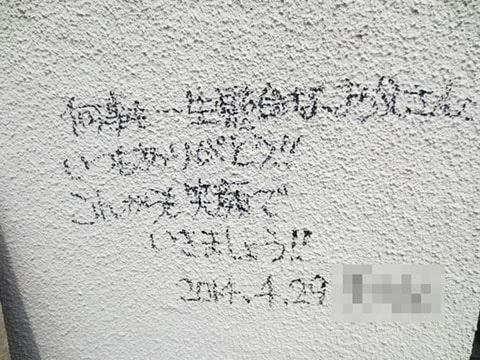 何事も一生懸命な、お父さん
いつもありがとう!!
これからも笑顔で
いきましょう!!
2014.4.29